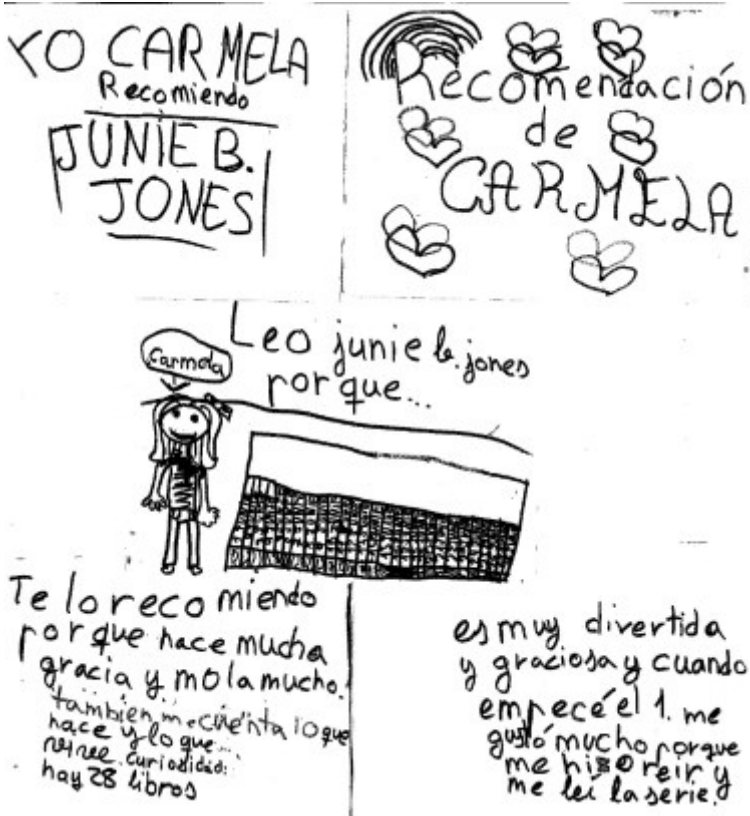 YO CARMELA
Recomiendo
JUNIE B.
JONES
Recomendación
de
CARMELA
Leo junie b. jones
porque...
Carmela
Te lo recomiendo
porque hace mucha
gracia y mola mucho.
también me cuenta lo que
hace y lo que...
curiosidad:
hay 28 libros
es muy divertida
y graciosa y cuando
empecé el 1. me
gustó mucho porque
me hiso reir y
me leí la serie.